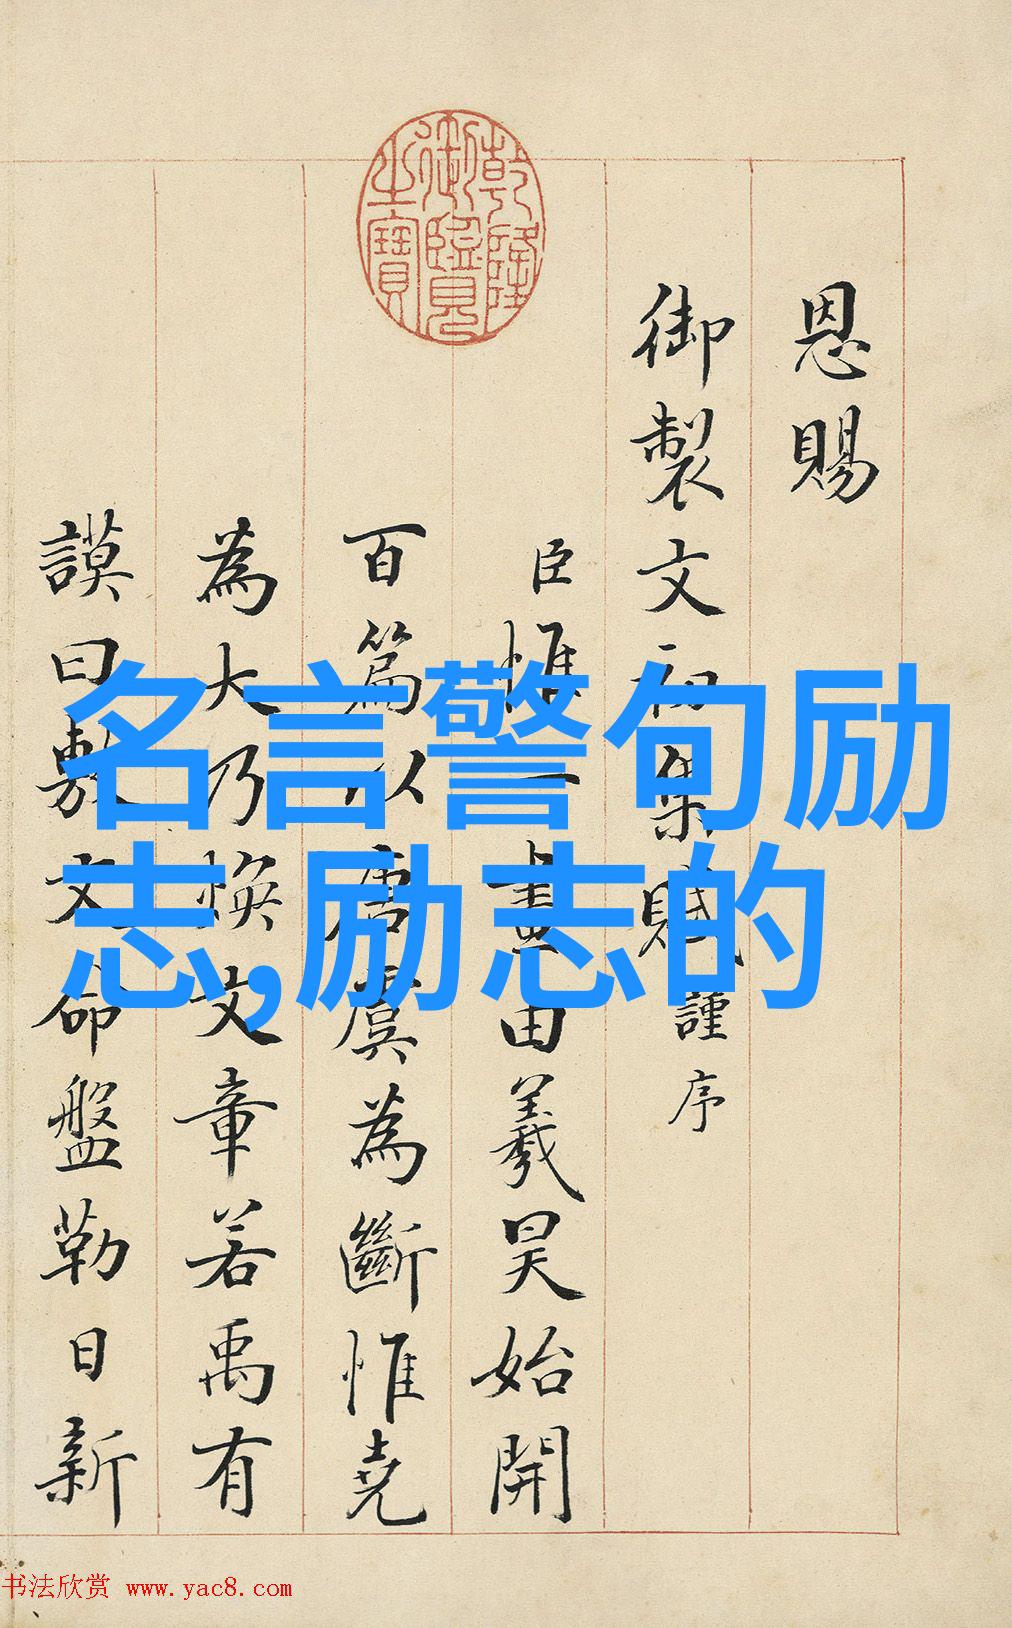 乾隆
御覽
之寶
恩賜
御製文初集賦謹序
臣惟一畫由羲昊始開
百篇以唐虞為斷惟堯
為大乃煥文章若禹有
謨曰敷文命盤勒日新
名言警句励
志,励志的
书法欣赏 www.yac8.com